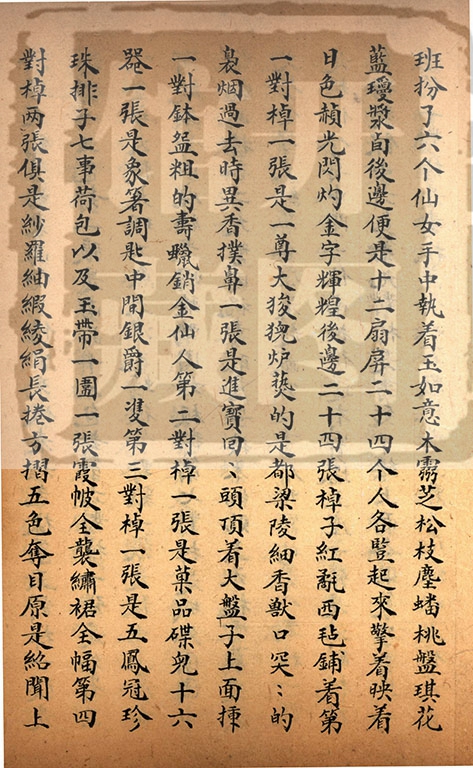 班扮了六个仙女手中執着玉如意木靈芝松枝麈蟠桃盤琪花
藍瓊漿自後邊便是十二扇屏二十四个人各豎起來擎着映着
日色赬光閃灼金字輝煌後邊二十四張棹子紅氈西毡鋪着第
一對棹一張是一尊大狻猊炉爇的是都梁陵細香獸口突〻的
裊烟過去時異香撲鼻一張是進寶回〻頭頂着大盤子上面揷
一對鉢盌粗的壽蠟銷金仙人第二對棹一張是菓品碟兒十六
器一張是象箸調匙中間銀爵一𩀱第三對棹一張是五鳳冠珍
珠排子七事荷包以及玉帶一圍一張霞帔全襲繡裙全幅第四
對棹两張俱是紗羅紬緞綾絹長捲方摺五色奪目原是紹聞上
藏 图